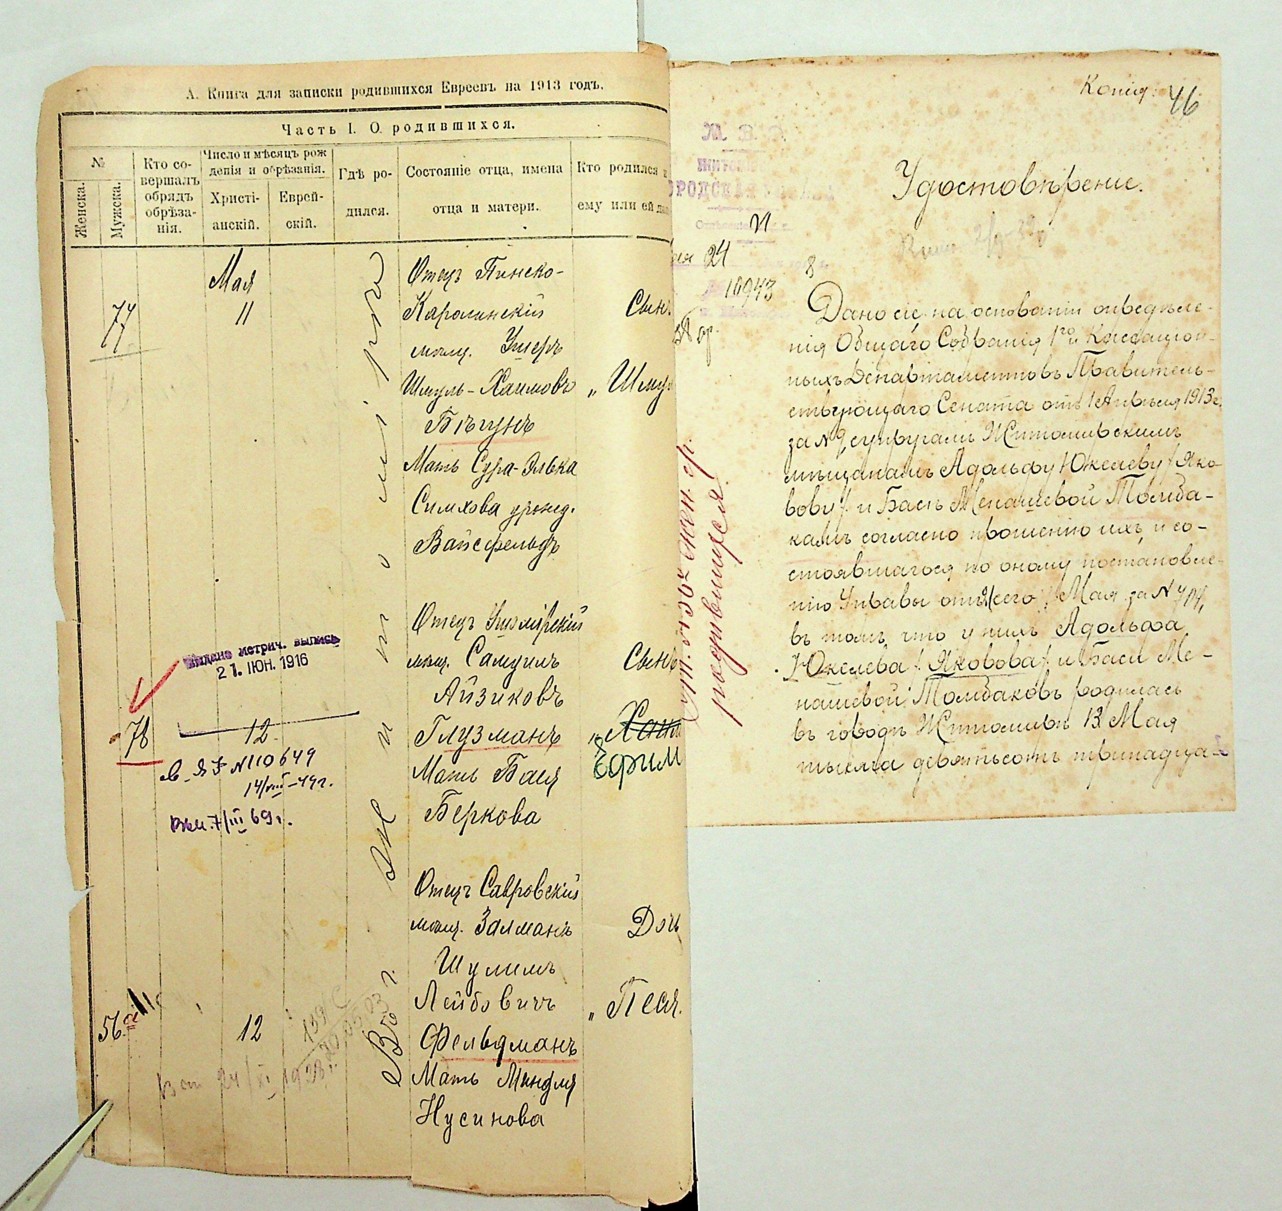 А. Книга для записки родившихся Евреевъ на 1913 годъ.
Часть I. О родившихся.
№
Женска.
Мужска.
Кто со-
вершалъ
обрядъ
обрѣза-
нія.
Число и мѣсяцъ рож
денія и обрѣзанія.
Христі-
анскій.
Еврей-
скій.
Гдѣ ро-
дился.
Состояніе отца, имена
отца и матери.
Кто родился и
ему или ей
Въ г. Житомірѣ
Мая
77
11
Отецъ Пинско-
Каролинскій
мѣщ. Ушеръ
Шмуль-Хаимовъ
Бѣгунъ
Мать Сура-Элька
Симхова урожд.
Вайсфельдъ
Сынъ
„Шмуль
выдана метрич. выпись
21. ІЮН. 1916
78
12
В. ЯЗ N110649
14/VIII-44г.
7/III 69г.
Отецъ Житомірскій
мѣщ. Самуилъ
Айзиковъ
Глузманъ
Мать Бася
Беркова
Сынъ
Ефим
56
12
24/XI 1928г.
Отецъ Савровскій
мѣщ. Залманъ
Шулимъ
Лейбовичъ
Фельдманъ
Мать Миндля
Нусинова
Дочь
„Песя.
Копія:
46
М. В. Д.
24
№ 10943
родившихся
Удостовѣреніе.
Дано сіе на основаніи опредѣле-
нія Общаго Собранія 1го и Кассаціон-
ныхъ Департаментовъ Правитель-
ствующаго Сената отъ 1 Апрѣля 1913 г.
за N 9, супругамъ Житомирскимъ
мѣщанамъ Адольфу /Юкелеву/ Яко-
вову/ и Басѣ Менашевой Толмба-
камъ согласно прошенію ихъ и со-
стоявшагося по оному постановле-
нію Управы отъ сего Мая за N
въ томъ, что у нихъ Адольфа
Юкелева /Яковова/ и Баси Ме-
нашевой Толмбаковъ родилась
въ городѣ Житомирѣ 13 Мая
тысяча девятьсотъ тринадца-